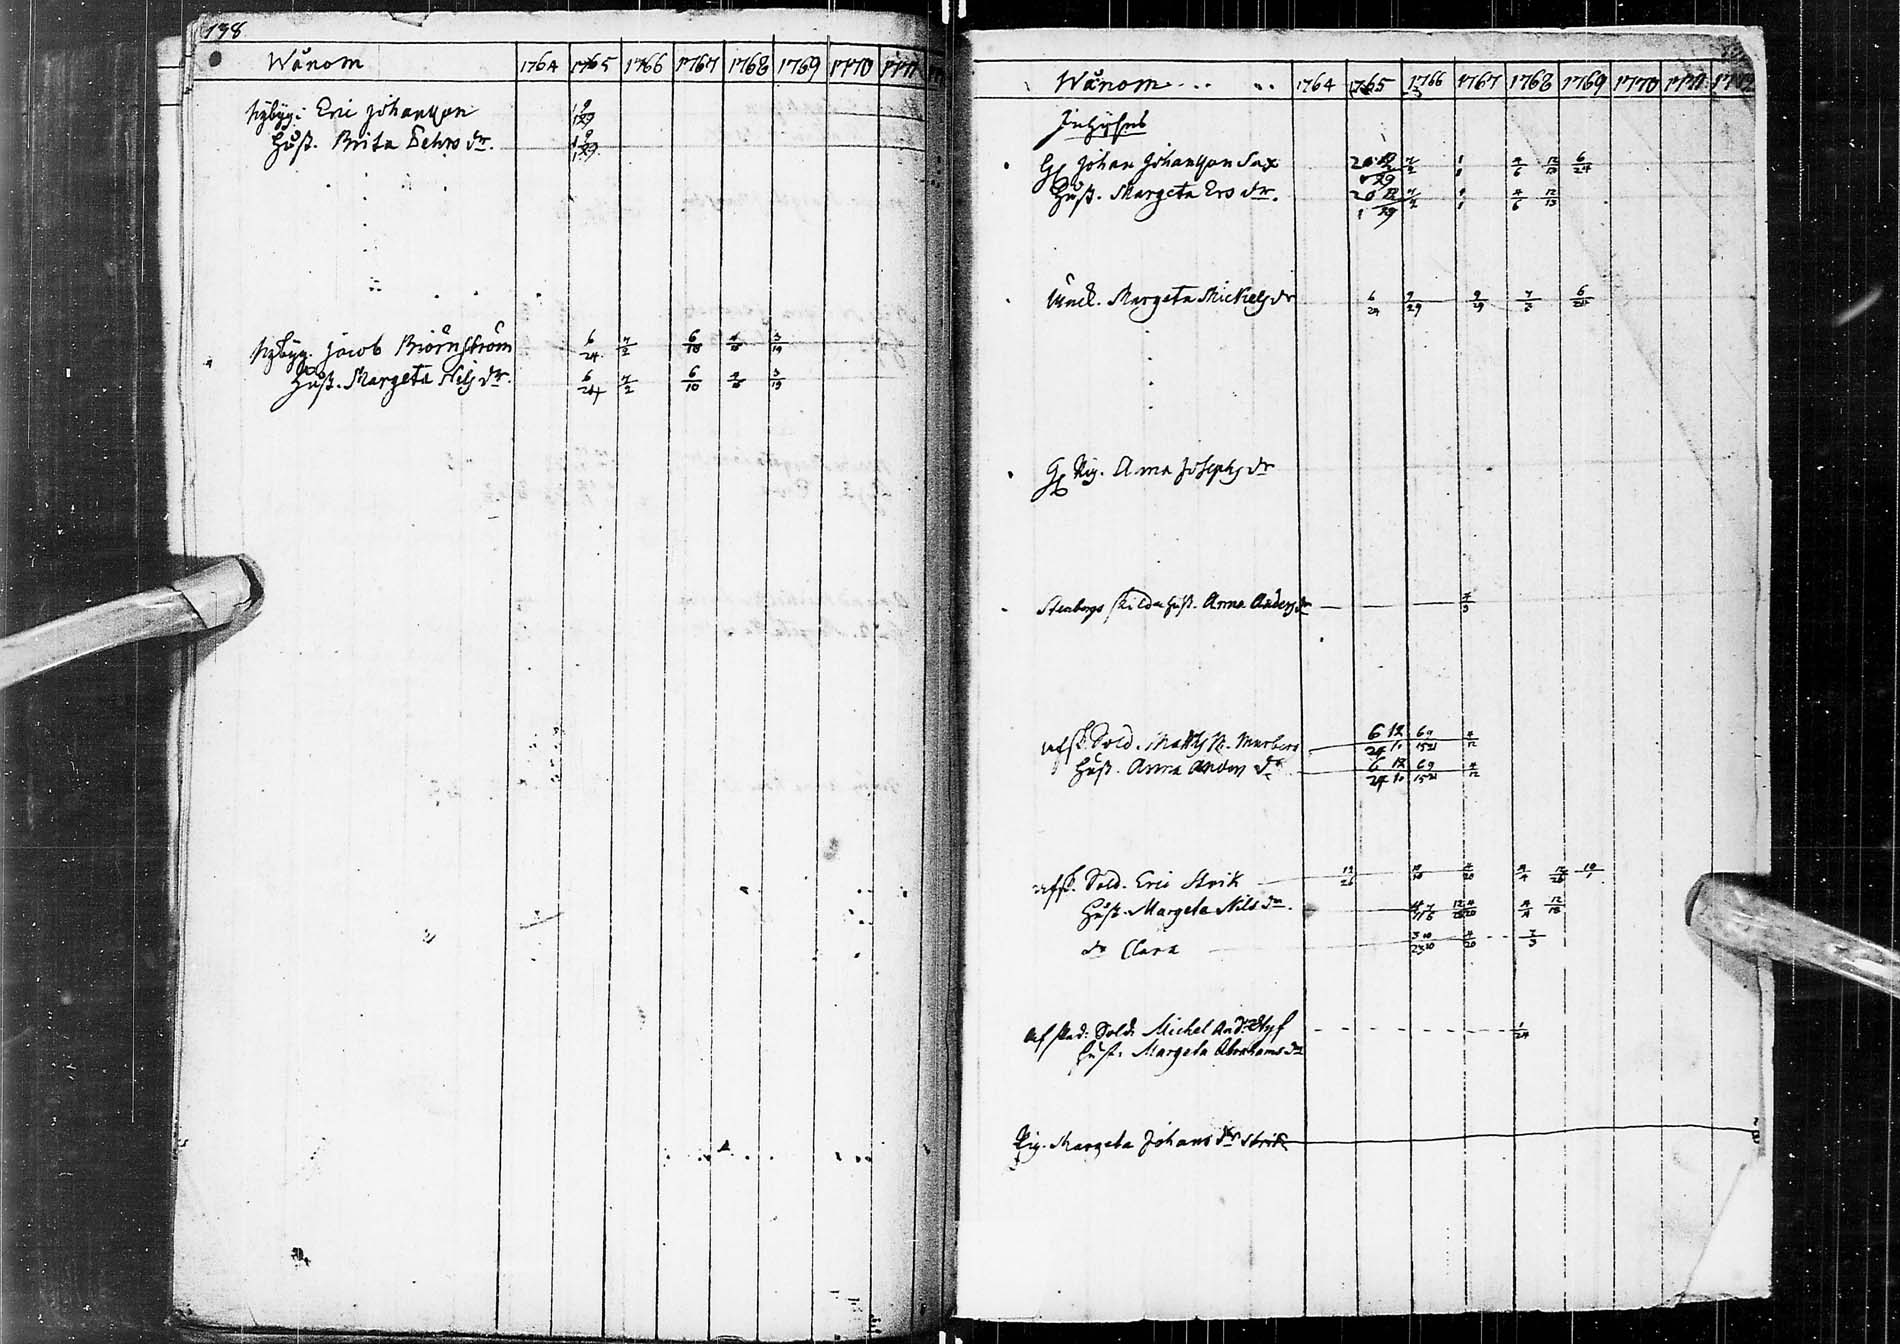 198
Wånom 1764 1765 1766 1767 1768 1769 1770 1771
Nybyg: Eric Johansson 9/29
Hust. Brita Pehrs dr. 9/29
Nybyg. Jacob Biörnström 6/24 7/2 6/10 4/10 3/19
Hust. Margeta Nils dr. 6/24 7/2 6/10 4/10 3/19
Wånom 1764 1765 1766 1767 1768 1769 1770 1771 1772
Inhyses
Johan Johansson Sax 7/2 1/1 4/6 12/13 6/24
Hust. Margeta Ers dr. 7/2 1/1 4/6 12/13
Änck. Margeta Mickels dr 6/24 9/29 9/29 7/3 6/24
Pig. Anna Josephs dr
Stenbergs skilda hust. Anna Anders dr
Afsk. Sold. Matts M. Murberg 6/24 12/10 4/12
Hust. Anna Anders dr 6/24 12/10 4/12
Afsk. Sold. Eric Strik 12/26 4/20 4/4 12/26 10/1
Hust. Margeta Nils dr. 4/20 4/4 12/13
dr Clara 4/20 7/3
Afskad: Sold: Michel And: Styf 1/24
Hust. Margeta Abrahams dr
Pig. Margeta Johans dr Strik